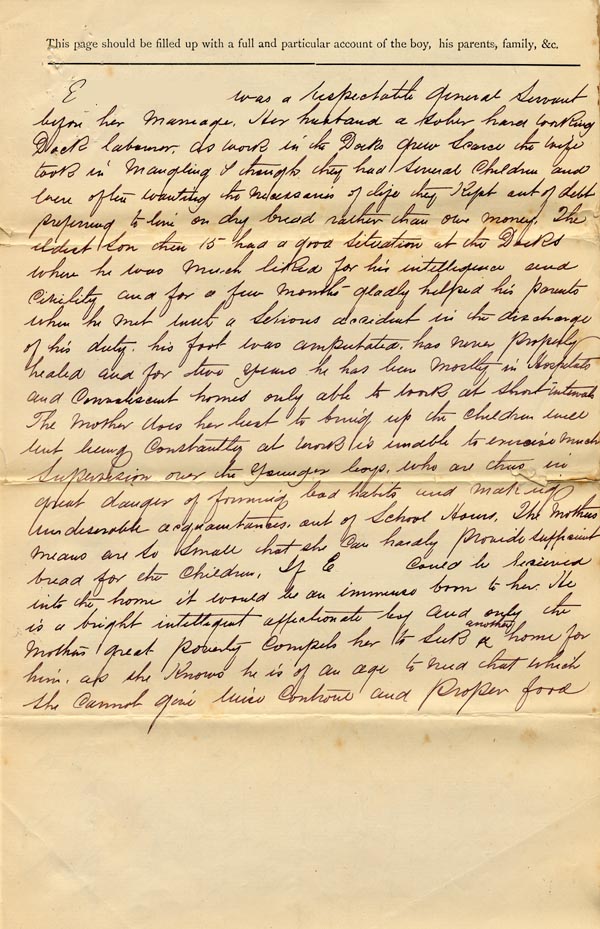 This page should be filled up with a full and particular account of the boy, his parents, family, &c.
E was a respectable General Servant
before her Marriage. Her husband a sober hard working
Dock labourer, as work in the Docks grew Scarce the wife
took in Mangling & though they had Several Children and
were often wanting the necessaries of life they Kept out of debt
preferring to live on dry bread rather than owe money. The
eldest Son then 15 had a good Situation at the Docks
where he was Much liked for his intelligence and
Civility and for a few Months gladly helped his parents
when he Met with a Serious accident in the discharge
of his duty. his foot was amputated. has never properly
healed and for two years he has been Mostly in Hospitals
and Convalescent homes only able to work at short intervals
The Mother does her best to bring up the Children well
but being Constantly at work is unable to exercise much
Supervision over the younger boys, who are thus in
great danger of forming bad habits and making
undesirable acquaintances, out of School Hours. The Mothers
means are so small that she Can hardly provide sufficient
bread for the Children. If E Could be received
into the home it would be an immense boon to her. He
is a bright intelligent affectionate boy and only the
Mothers great poverty Compels her to seek another home for
him. as she Knows he is of an age to need that which
she Cannot give wise Controul and proper food